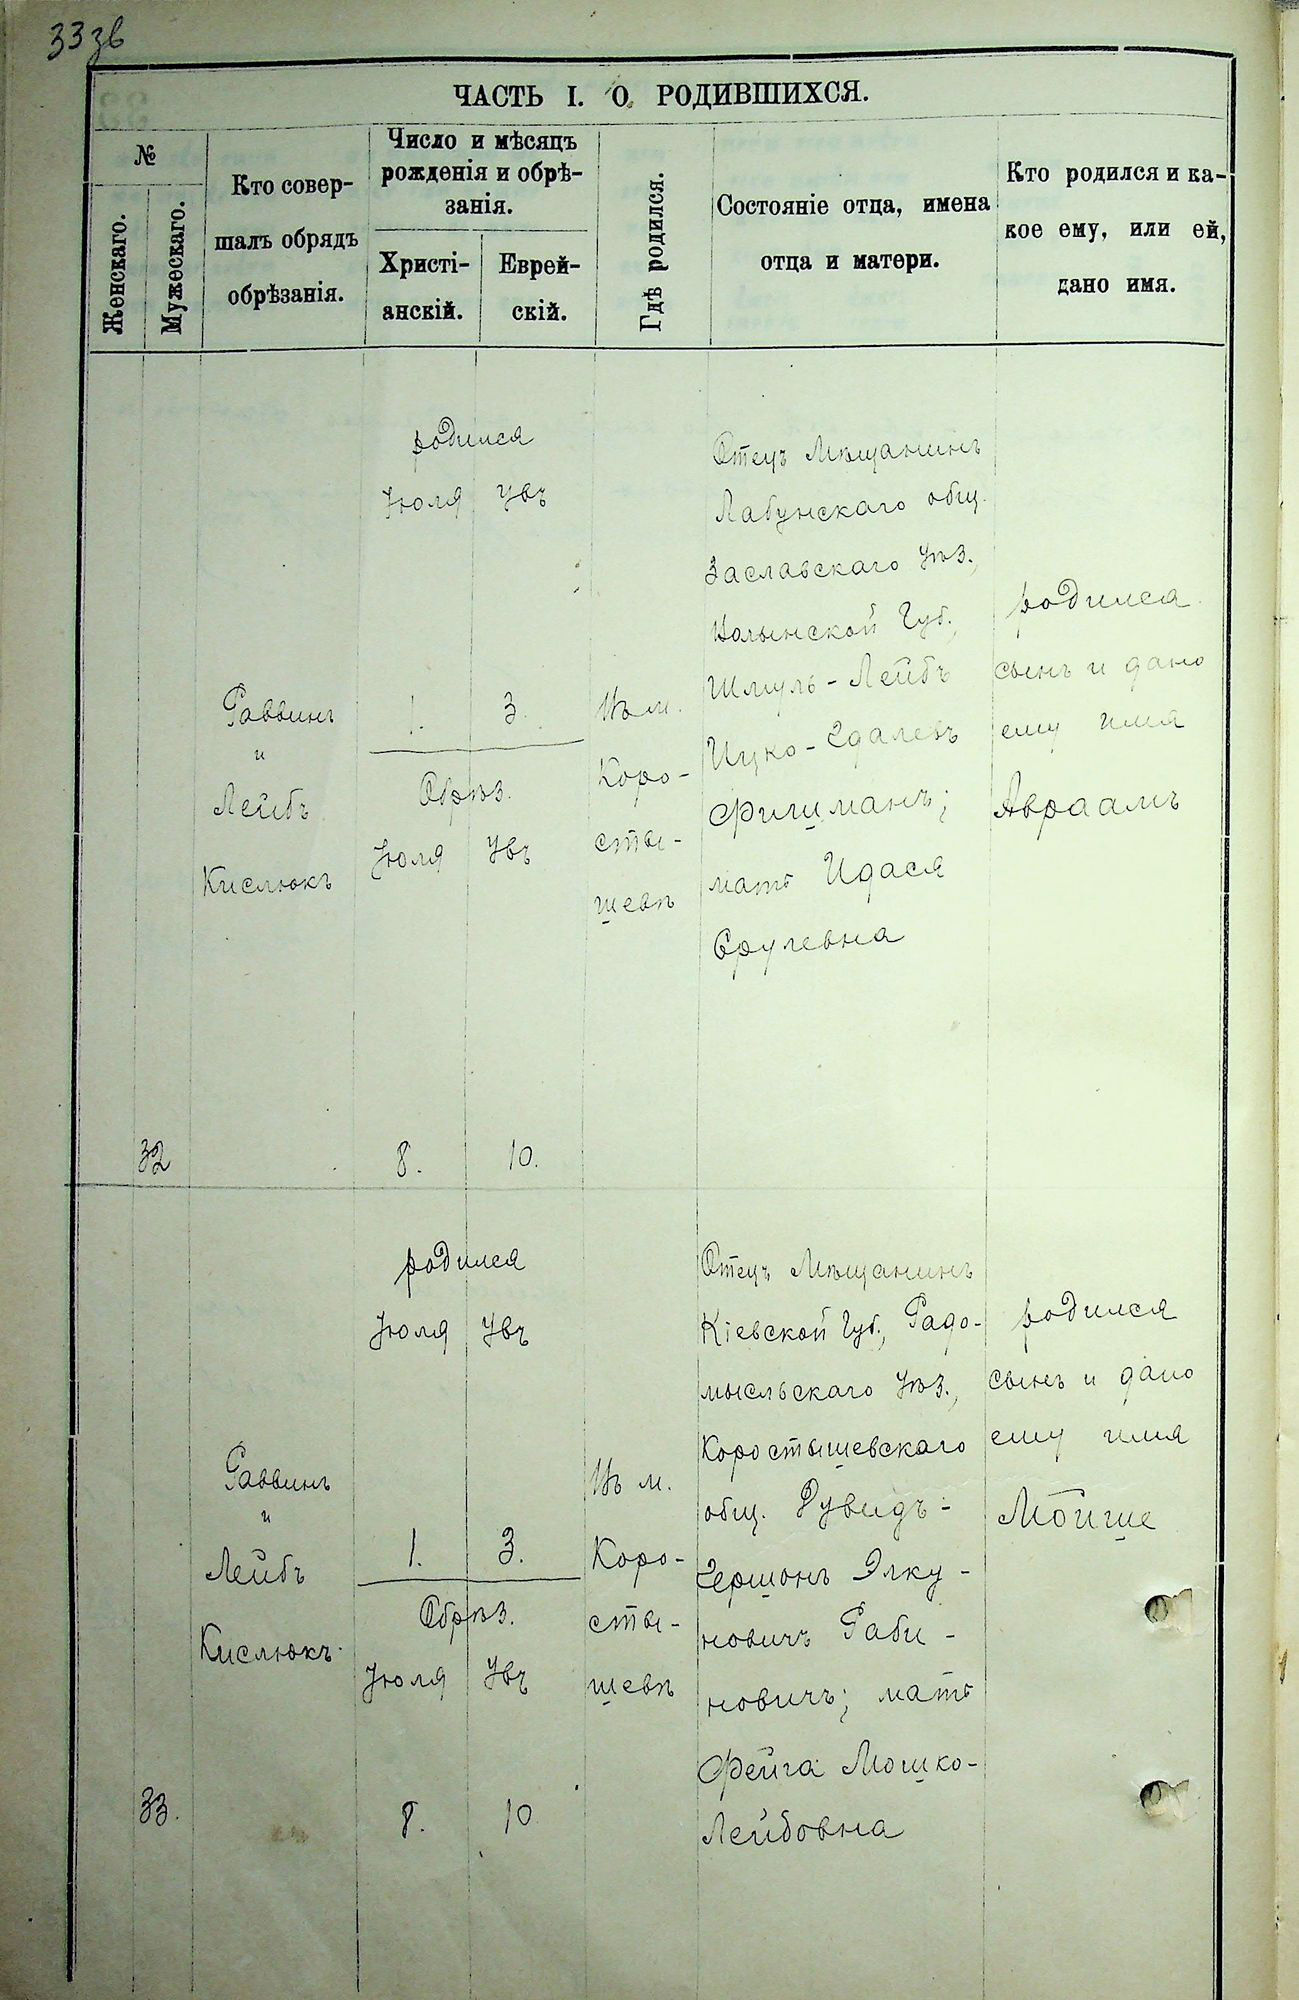 33 зв
ЧАСТЬ I. О РОДИВШИХСЯ.
№
Женскаго.
Мужескаго.
Кто совер-
шалъ обрядъ
обрѣзанія.
Число и мѣсяцъ
рожденія и обрѣ-
занія.
Христі-
анскій.
Еврей-
скій.
Гдѣ родился.
Состояніе отца, имена
отца и матери.
Кто родился и ка-
кое ему, или ей,
дано имя.
32
Раввинъ
и
Лейбъ
Кислюкъ
родился
Іюля Увъ
1. 3.
Обрѣз.
Іюля Увъ
8. 10.
Въ м.
Коро-
сты-
шевѣ
Отецъ Мѣщанинъ
Лабунскаго общ.
Заславскаго Уѣз.,
Волынской Губ.,
Шмуль-Лейбъ
Ицко-Гдалевъ
Фишманъ;
мать Идася
Срулевна
родился
сынъ и дано
ему имя
Авраамъ
33.
Раввинъ
и
Лейбъ
Кислюкъ.
родился
Іюля Увъ
1. 3.
Обрѣз.
Іюля Увъ
8. 10
Въ м.
Коро-
сты-
шевѣ
Отецъ Мѣщанинъ
Кіевской Губ., Радо-
мысльскаго Уѣз.,
Коростышевскаго
общ. Дувидъ-
Гершонъ Элку-
новичъ Раби-
новичъ; мать
Фейга Мошко-
Лейбовна
родился
сынъ и дано
ему имя
Мойше